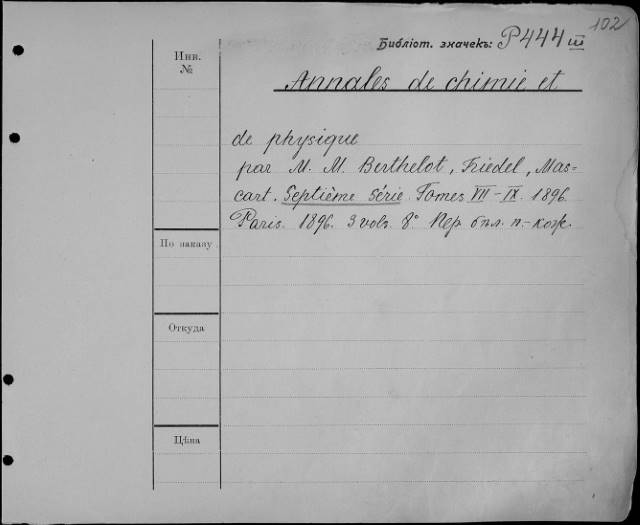 102
Библіот. значекъ: P444 III
Инв.
№
Annales de chimie et
de physique
par M. M. Berthelot, Friedel, Mas=
cart. Septième Série. Tomes VII-IX. 1896.
Paris. 1896. 3 vols. 8° Пер. бѣл. п.-кож.
По наказу
Откуда
Цѣна